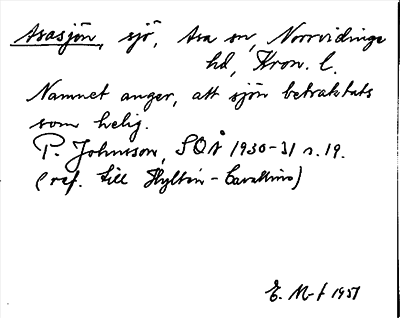 Asasjön, sjö, Asa sn, Norrvidinge
hd, Kron. l.
Namnet anger, att sjön betraktats
som helig.
P. Johnsson, SOÅ 1930-31 s. 19.
(ref. till Hyltén-Cavallius)
E. M-t 1951